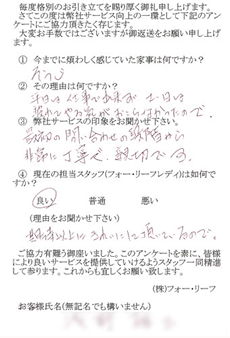 毎度格別のお引き立てを賜り厚く御礼申し上げます。
さてこの度は弊社サービス向上の一環として下記のアン
ケートにご協力頂きたく存じます。
大変お手数ではございますが御返送をお願い申し上げ
ます。
① 今までに煩わしく感じていた家事は何ですか?
そうじ
② その理由は何ですか?
平日は仕事で出来ず、土・日は
③ 弊社サービスの印象をお聞かせ下さい。
最初の問い合わせの段階から
非常に丁寧で、親切です。
④ 現在の担当スタッフ(フォー・リーフレディ)は如何で
すか?
良い 普通 悪い
(理由をお聞かせ下さい)
期待以上にきれいにして頂いているので。
ご協力有難う御座いました。このアンケートを素に、皆様
により良いサービスを提供していけるようスタッフ一同精進
して参ります。これからも宜しくお願い致します。
(株)フォー・リーフ
お客様氏名(無記名でも構いません)